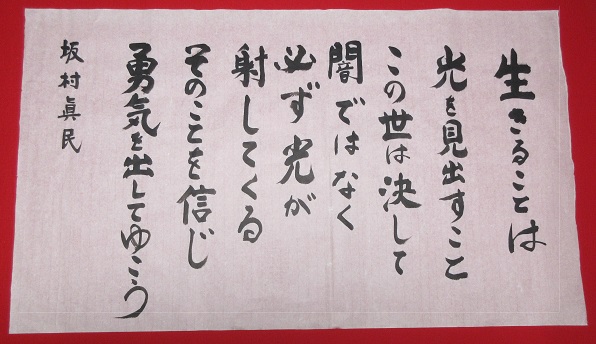 生きることは
光を見出すこと
この世は決して
闇ではなく
必ず光が
射してくる
そのことを信じ
勇気を出してゆこう
坂村眞民